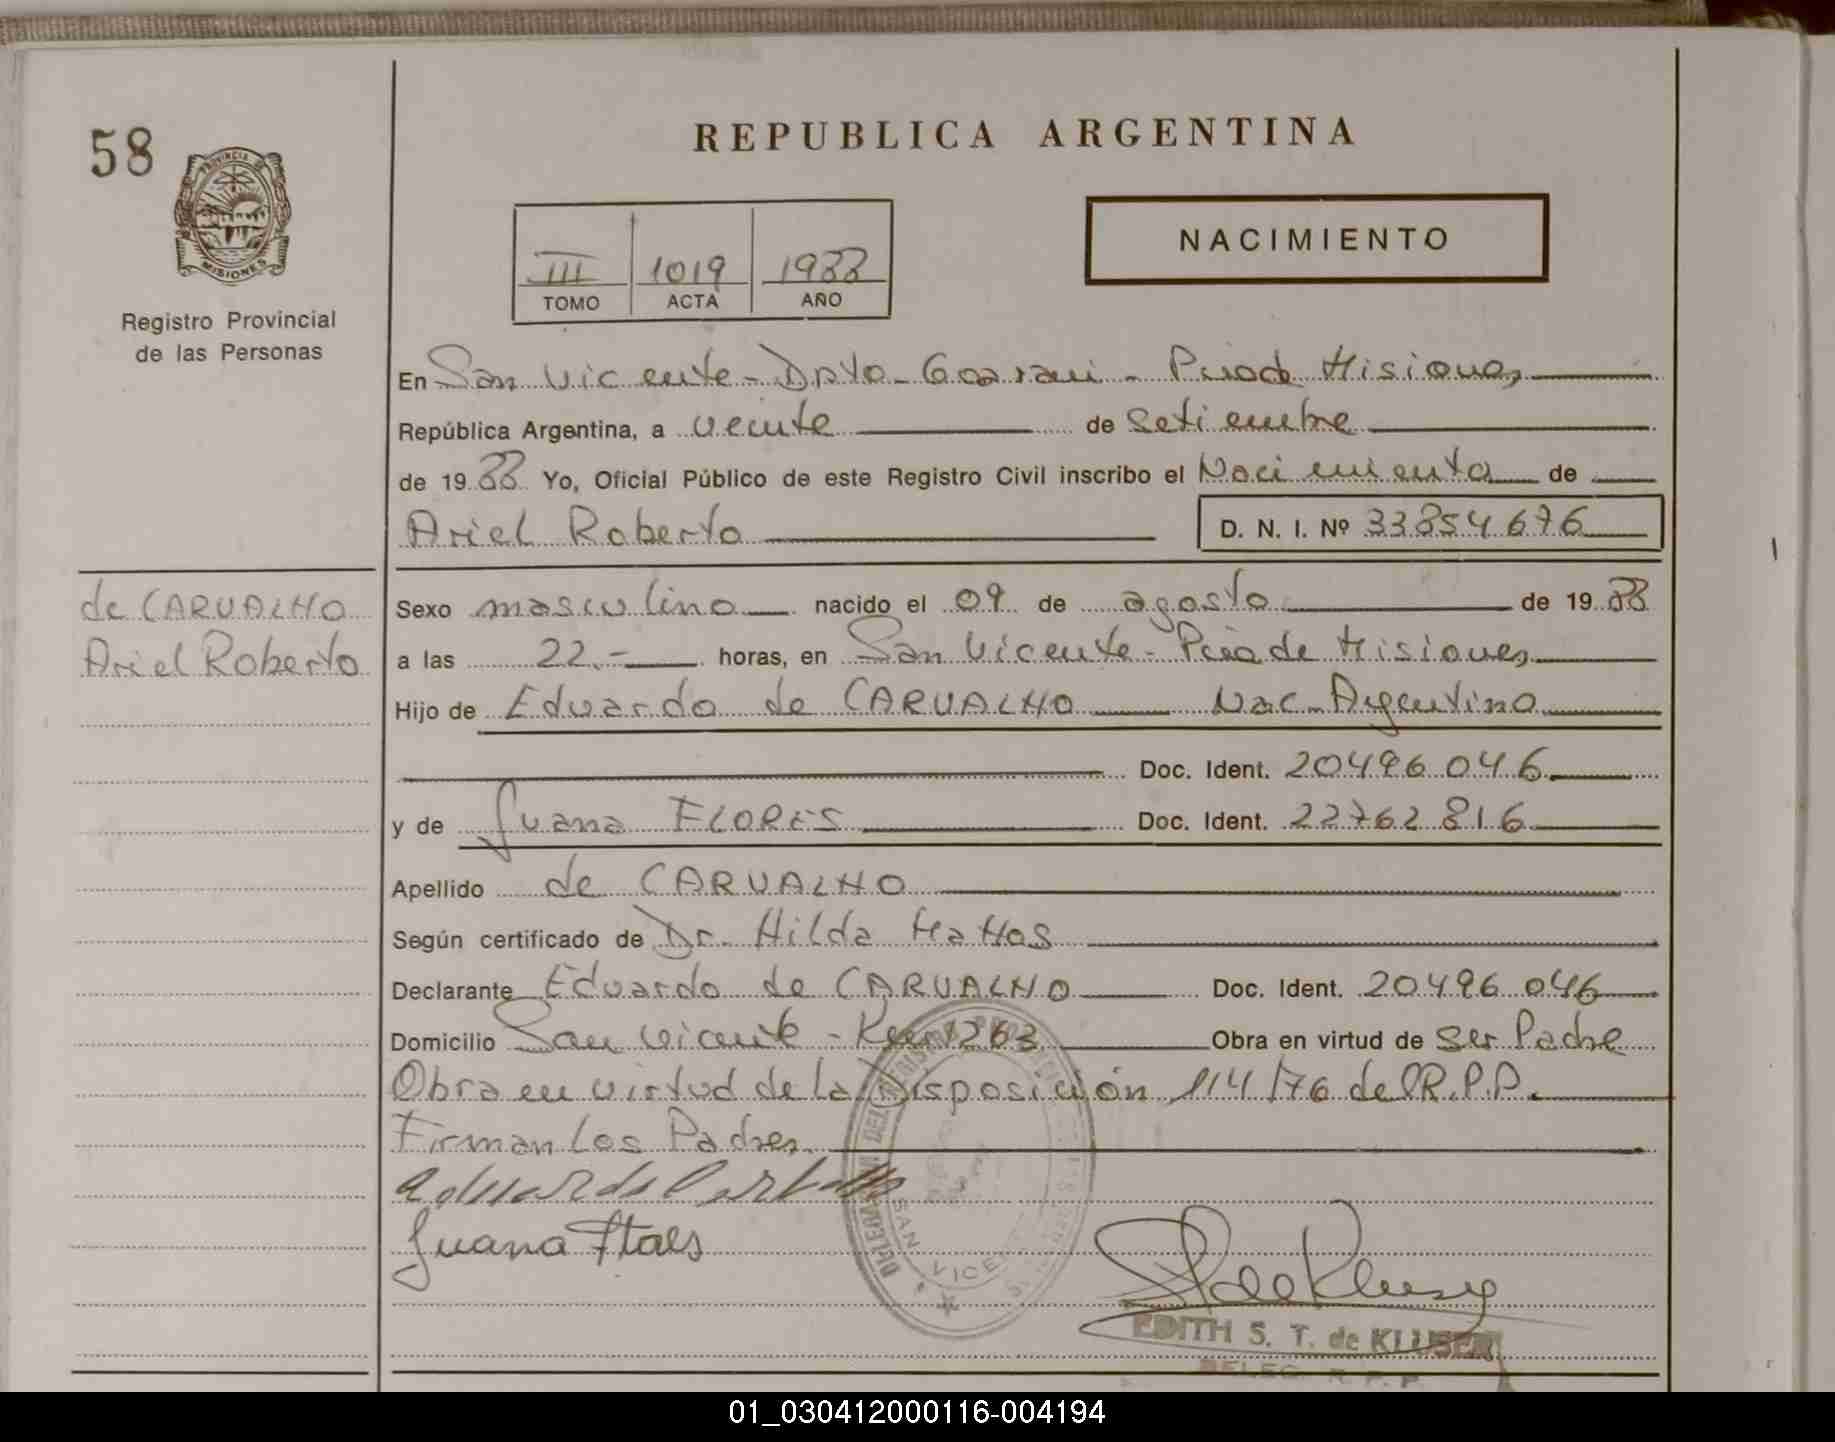 58
REPUBLICA ARGENTINA
PROVINCIA DE
MISIONES
Registro Provincial
de las Personas
III 1019 1988
TOMO ACTA AÑO
NACIMIENTO
En San Vicente - Dpto - Guarani - Pciade Misiones
República Argentina, a veinte de Setiembre
de 1988 Yo, Oficial Público de este Registro Civil inscribo el Nacimiento de
Ariel Roberto D. N. I. Nº 33.854.676
de CARVALHO
Ariel Roberto
Sexo masculino nacido el 09 de agosto de 1988
a las 22.- horas, en San Vicente - Pciade Misiones
Hijo de Eduardo de CARVALHO Nac. Argentino
Doc. Ident. 20496046
y de Juana FLORES Doc. Ident. 22762816
Apellido de CARVALHO
Según certificado de Dr. Hilda Mattos
Declarante Eduardo de CARVALHO Doc. Ident. 20496046
Domicilio San Vicente - Km 1263 Obra en virtud de Ser Padre
Obra en virtud de la Disposición 114/76 del R.P.P.
Firman Los Padres
Juana
SAN VICENTE
EDITH S. T. de KLUSER
DELEG. R. P. P.
01_030412000116-004194